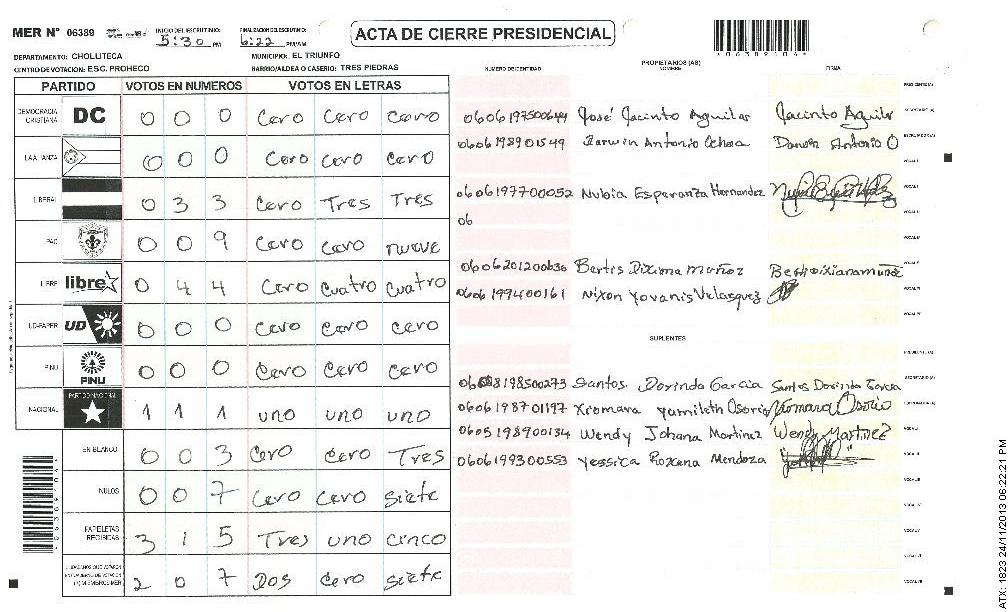 MER N° 06389
INICIO DEL ESCRUTINIO:
5:30 PM
FINALIZACION DEL ESCRUTINIO:
6:22 PM/AM
ACTA DE CIERRE PRESIDENCIAL
*06389104*
DEPARTAMENTO: CHOLUTECA
MUNICIPIO: EL TRIUNFO
CENTRO DE VOTACION: ESC. PROHECO
BARRIO/ALDEA O CASERIO: TRES PIEDRAS
PROPIETARIOS (AS)
NUMERO DE IDENTIDAD NOMBRE FIRMA
PARTIDO VOTOS EN NUMEROS VOTOS EN LETRAS
DEMOCRACIA CRISTIANA DC 0 0 0 Cero Cero Cero
LA ALIANZA 0 0 0 Cero Cero Cero
LIBERAL 0 3 3 Cero Tres Tres
PAC 0 0 9 Cero Cero nueve
LIBRE libre 0 4 4 Cero Cuatro Cuatro
UD-FAPER UD 0 0 0 Cero Cero Cero
PINU PINU 0 0 0 Cero Cero Cero
NACIONAL PARTIDO NACIONAL 1 1 1 uno uno uno
EN BLANCO 0 0 3 Cero Cero Tres
NULOS 0 0 7 Cero Cero siete
PAPELETAS RECIBIDAS 3 1 5 Tres uno cinco
CIUDADANOS QUE VOTARON 2 0 7 Dos Cero siete
PRESIDENTE (A)
0606197500644 José Jacinto Aguilar Jacinto Aguilar SECRETARIO (A)
0606198901549 Darwin Antonio Ochoa Darwin Antonio O ESCRUTADOR (A)
VOCAL I
0606197700052 Nubia Esperanza Hernandez
06
0606201200636 Bertis Dixiana Muñoz
0606199400161 Nixon Yovanis Velasquez
SUPLENTES
PRESIDENTE (A)
8198500273 Santos Dorinda Garcia Santos Dorinda Garcia SECRETARIO (A)
0606198701197 Xiomara Yamileth Osorio Xiomara Osorio
0605198900134 Wendy Johana Martinez Wendy Martinez
0606199300553 Yessica Roxana Mendoza
ATX: 1823 24/11/2013 06:22:21 PM